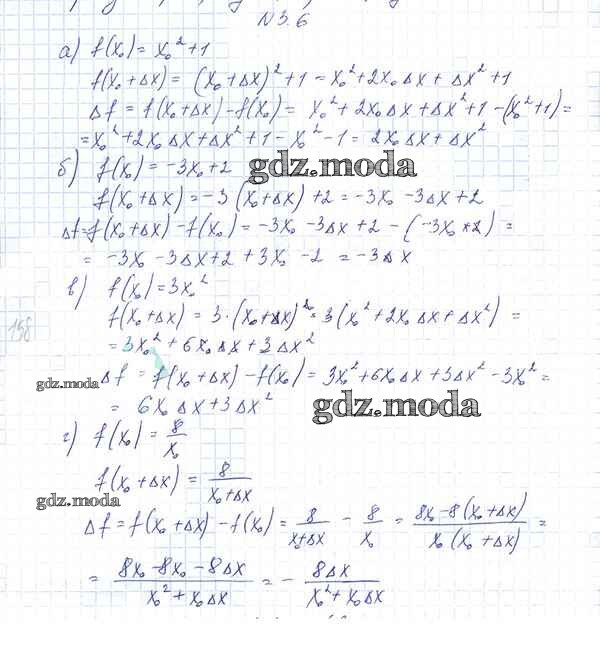 N 3.6
а) f(x₀) = x₀² + 1
f(x₀ + Δx) = (x₀ + Δx)² + 1 = x₀² + 2x₀Δx + Δx² + 1
Δf = f(x₀ + Δx) - f(x₀) = x₀² + 2x₀Δx + Δx² + 1 - (x₀² + 1) =
= x₀² + 2x₀Δx + Δx² + 1 - x₀² - 1 = 2x₀Δx + Δx²
б) f(x₀) = -3x₀ + 2
gdz.moda
f(x₀ + Δx) = -3(x₀ + Δx) + 2 = -3x₀ - 3Δx + 2
Δf = f(x₀ + Δx) - f(x₀) = -3x₀ - 3Δx + 2 - (-3x₀ + 2) =
= -3x₀ - 3Δx + 2 + 3x₀ - 2 = -3Δx
в) f(x₀) = 3x₀²
158
f(x₀ + Δx) = 3·(x₀ + Δx)² = 3(x₀² + 2x₀Δx + Δx²) =
= 3x₀² + 6x₀Δx + 3Δx²
gdz.moda
Δf = f(x₀ + Δx) - f(x₀) = 3x₀² + 6x₀Δx + 3Δx² - 3x₀² =
= 6x₀Δx + 3Δx²
gdz.moda
г) f(x₀) = 8/x₀
f(x₀ + Δx) = 8/(x₀ + Δx)
gdz.moda
Δf = f(x₀ + Δx) - f(x₀) = 8/(x₀+Δx) - 8/x₀ = (8x₀ - 8(x₀ + Δx))/(x₀(x₀ + Δx)) =
= (8x₀ - 8x₀ - 8Δx)/(x₀² + x₀Δx) = - 8Δx/(x₀² + x₀Δx)